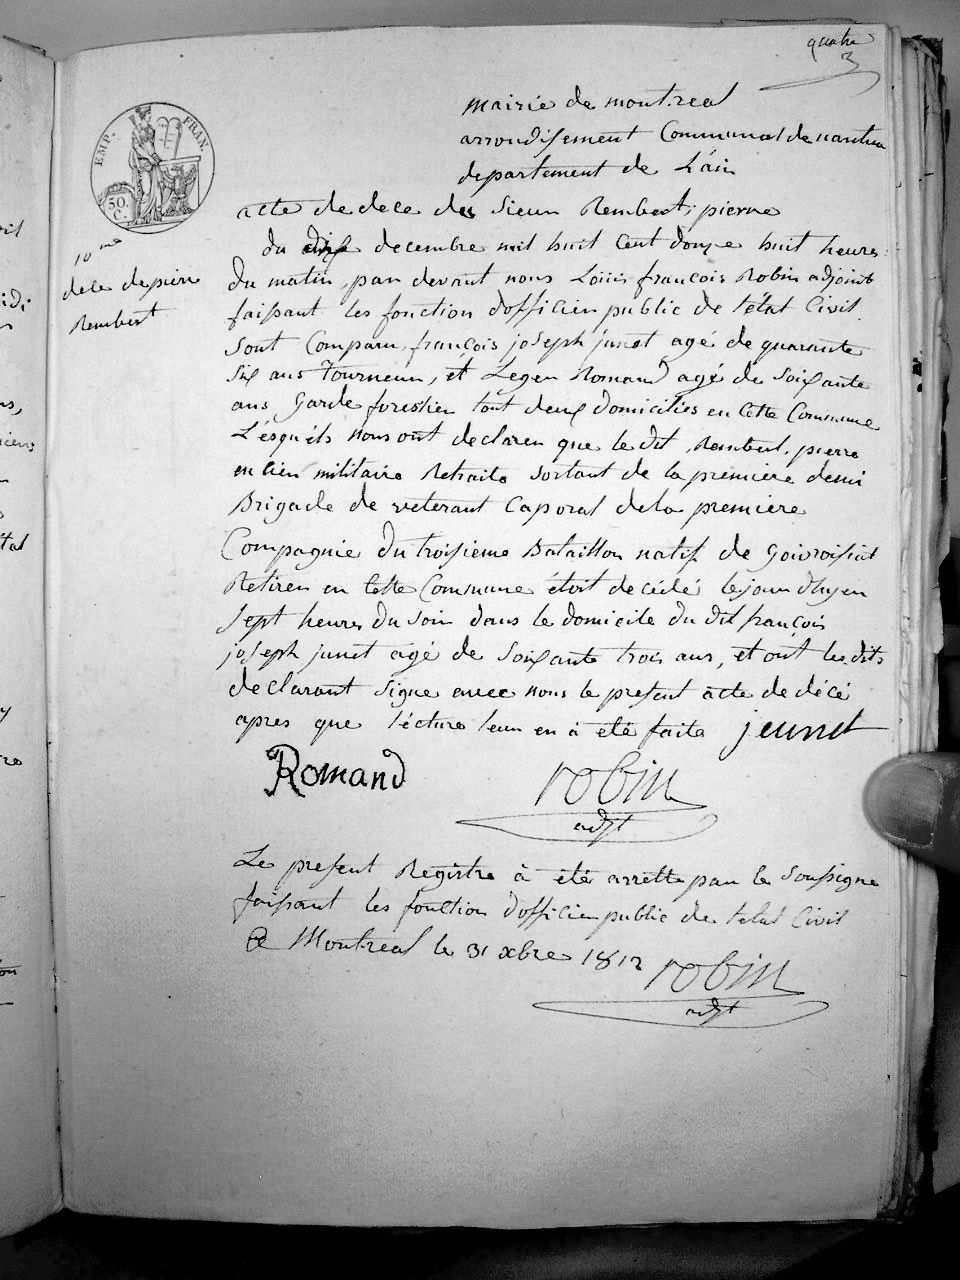 quatre
3
mairie de montreal
arrondissement Communal de nantua
departement de L'ain
EMP. FRAN.
50. C.
acte de dece de Sieur Rembert, pierre
10me
dece de pierre
Rembert
du decembre mil huit Cent douze huit heures
du matin, par devant nous Loüis françois Robin adjoint
faissant les fonction d'officier public de l'état Civil.
Sont Comparu françois joseph junet agé de quarante
Six ans Tourneur, et Leger Romand agé de soixante
ans Garde forestier tout deux domiciliés en Cette Commune
L'ésquéls nous ont declaren que le dit Rembert, pierre
encien militaire Retraite sortant de la premiere demi
Brigade de veterant Caporal de la premiere
Compagnie du troisieme Bataillon natif de
Retiren en Cette Commune étoit décédé le jour d'hyer
Sept heures du soir dans le domicile du dit françois
joseph junet agé de Soixante trois ans, et ont les dits
declarant Signe avec nous le present acte de décé
apres que lécture leur en à eté faite jeunet
Romand
robin
adjt
Le present Registre à eté arretté par le Soussigne
faissant les fonction d'officier public de letat Civil
a Montreal le 31 xbre 1812
robin
adjt